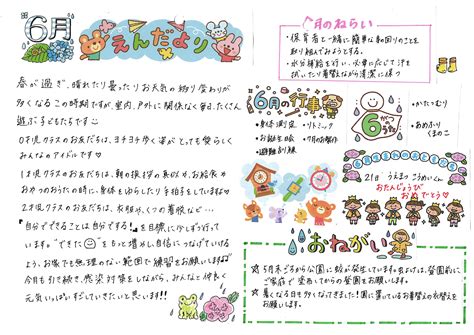 6月
えんだより
春が過ぎ、晴れたり曇ったりお天気の移り変わりが
多くなるこの時期ですが、室内、戸外に関係なく毎日、たくさん
遊ぶ子どもたちです
0才児クラスのお友だちは、ヨチヨチ歩く姿がとても愛らしく
みんなのアイドルです♡
1才児クラスのお友だちは、朝の挨拶の糸以外、お給食や
おかつのおうたの時に、身体をゆらしたり手拍子をしていますよ♡
2才児クラスのお友だちは、衣服や、くつの着脱など…
『自分でできることは自分でする!』を目標に少しずつ行って
います。"できた"をもっと増やし自信につなげていける
よう、お家でも無理のない範囲で練習をお願いします
今月も引き続き、感染対策をしながら、みんなと仲良く
元気いっぱいすごしていきたいと思います!!
6月のねらい
・保育者と一緒に簡単な身の回りのことを
取り組んでみようとする。
・水分補給を行い、必要に応じて汗を
拭いたり着替えながら清潔に保つ
6月の行事
・身体測定
・リトミック
・お誕生会
・避難訓練
6がつ
・かたつむり
・あめふり
くまのこ
21日
おたんじょうび
おめでとう♡
おねがい
☆ 5月末ごろから公園に蚊が発生しています。虫よけは、登園前に
ご家庭で塗布してからの登園をお願いします。
☆ 暑くなる日も多くなってきました!園に置いているお着替えの衣替えを
お願いします。